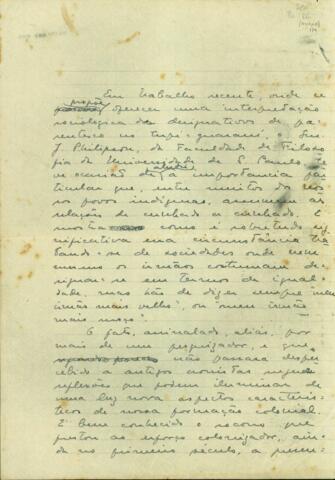 Em trabalho recente, onde se
propõe oferecer uma interpretação
sociologica dos designativos de pa-
rentesco no tupi-guarani, o Snr.
J. Philipson, da Faculdade de Filoso-
fia da Universidade de S. Paulo, te-
ve ocasião de importancia par-
ticular que, entre muitos dos
povos indigenas, assumem as
relações de cunhado a cunhado. E
mostra como é sobretudo si-
gnificativa essa circunstância tra-
tando-se de sociedades onde nem
mesmo os irmãos costumam de-
signar-se em termos de igual-
dade, mas hão de dizer sempre "meu
irmão mais velho", ou "meu irmão
mais moço".
O fato, assinalado, aliás, por
mais de um pesquisador, e que
não passara desper-
cebido a antigos cronistas sugere
reflexões que podem iluminar de
uma luz nova aspectos caracteris-
ticos de nossa formação colonial.
É bem conhecido o socorro que
prestou ao esforço colonizador, ain-
da no primeiro século, a presen-